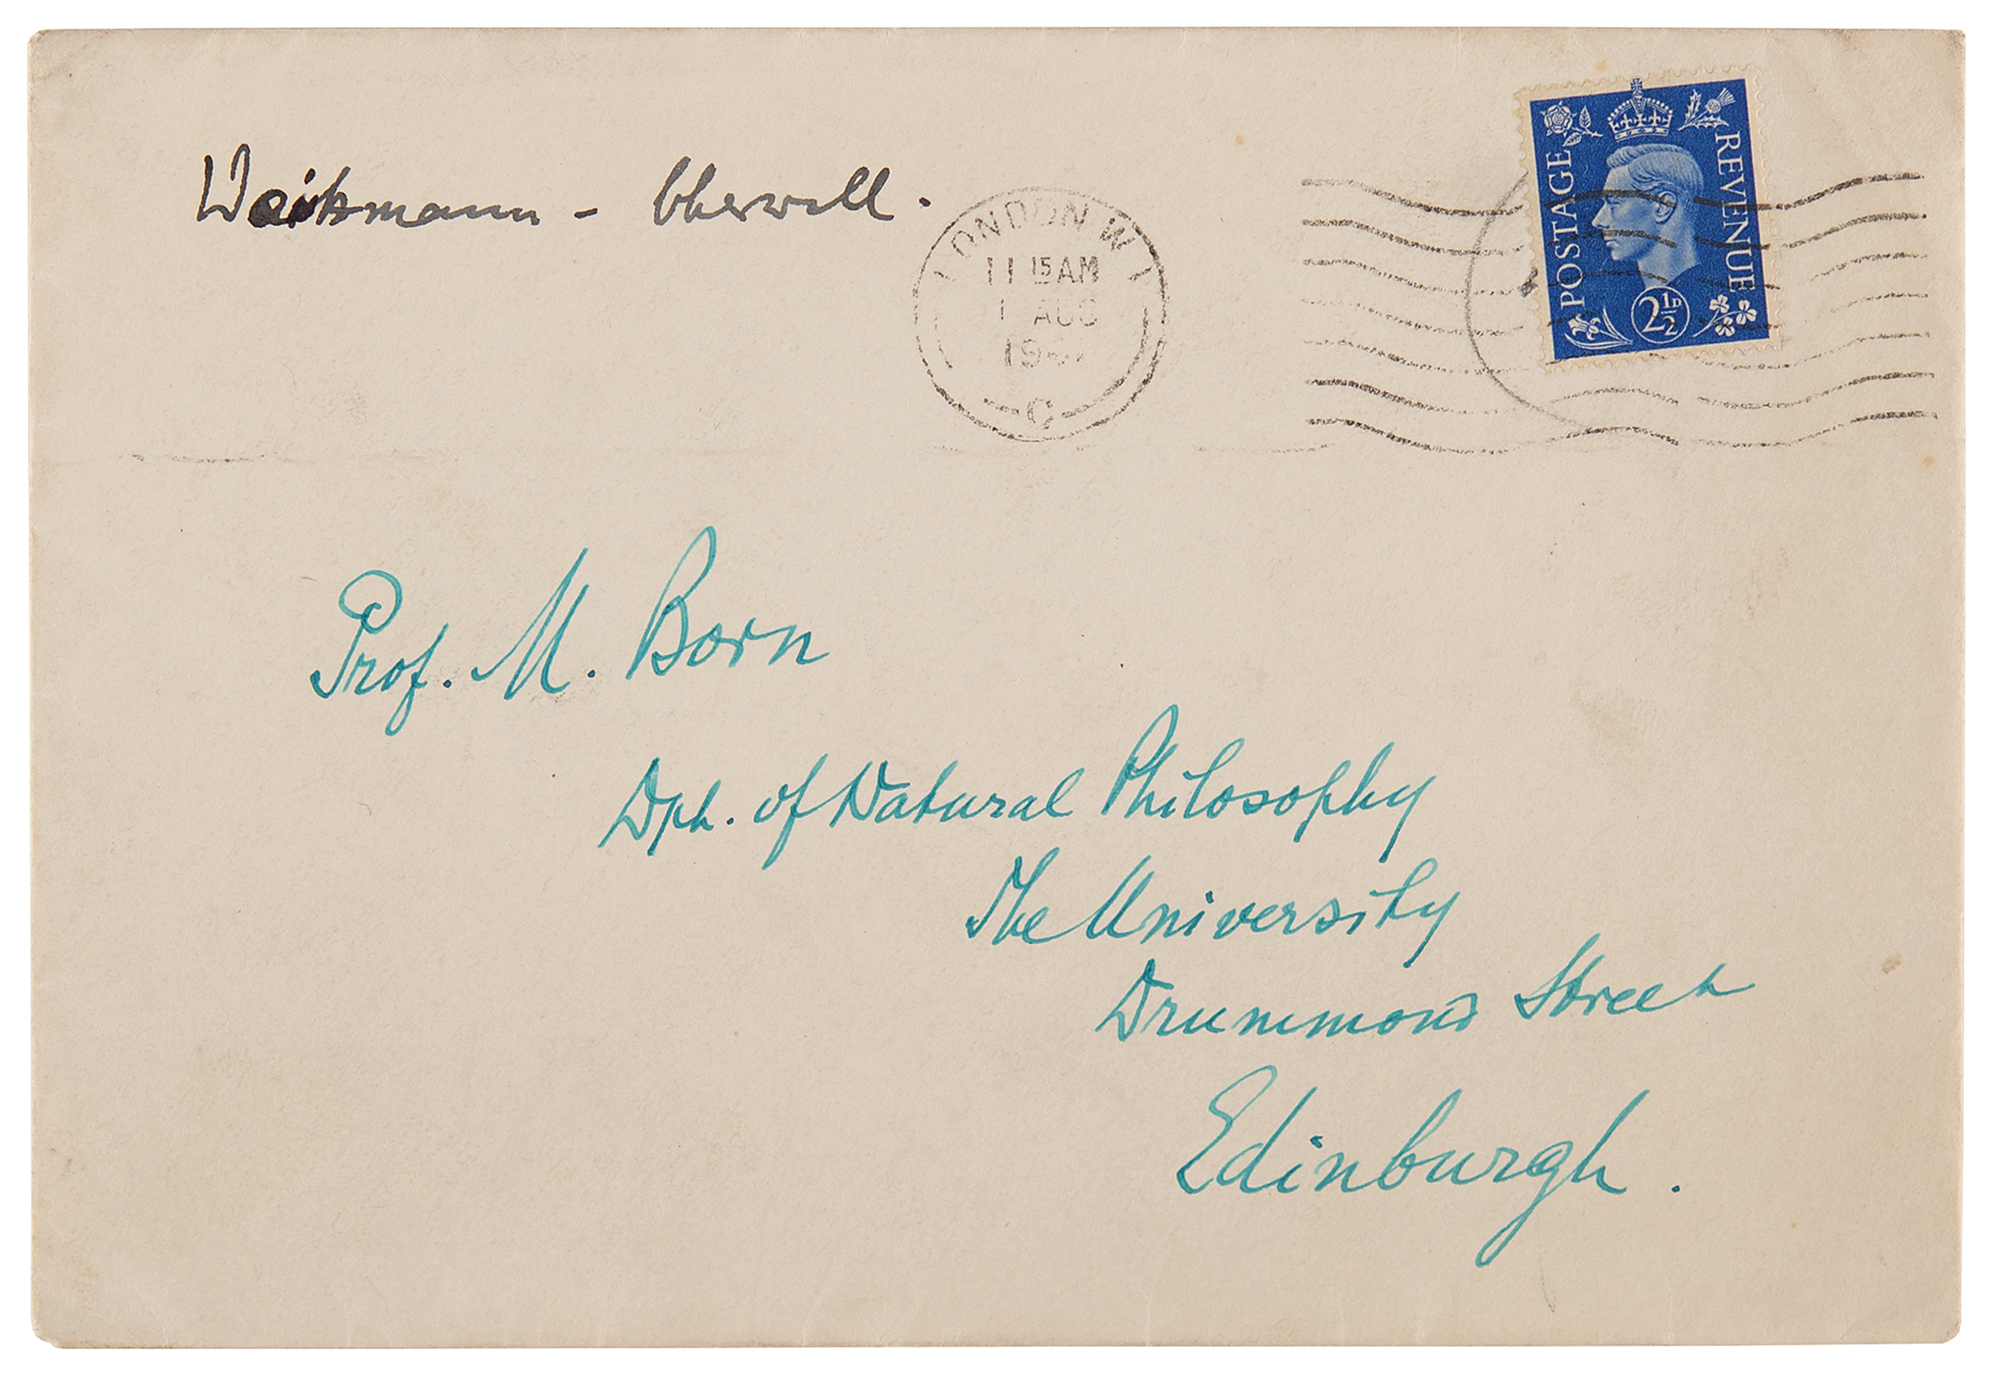 - Cherwell.
LONDON W 1
11 15 AM
1 AUG
19
C
POSTAGE
REVENUE
2½D
Prof. M. Born
Dpt. of Natural Philosophy
The University
Drummond Street
Edinburgh.